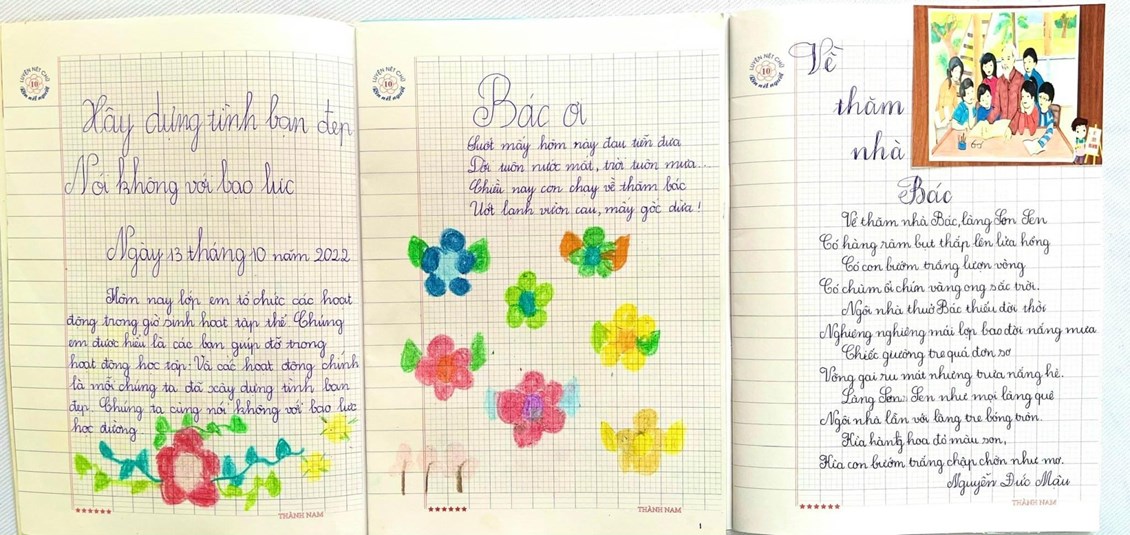 LUYỆN NÉT CHỮ
10
Rèn nết người
Xây dựng tình bạn đẹp
Nói không với bạo lực
Ngày 13 tháng 10 năm 2022
Hôm nay lớp em tổ chức các hoạt
động trong giờ sinh hoạt tập thể. Chúng
em được hiểu là các bạn giúp đỡ trong
hoạt động học tập. Và các hoạt động chính
là mỗi chúng ta đã xây dựng tình bạn
đẹp. Chúng ta cùng nói không với bạo lực
học đường
THÀNH NAM
LUYỆN NÉT CHỮ
10
Rèn nết người
Bác ơi
Suốt mấy hôm nay đau tiễn đưa
Đời tuôn nước mắt, trời tuôn mưa...
Chiều nay con chạy về thăm bác
Ướt lạnh vườn cau, mấy gốc dừa!
THÀNH NAM
1
LUYỆN NÉT CHỮ
10
Rèn nết người
Về
thăm
nhà
Bác
Về thăm nhà Bác, làng Sen
Có hàng râm bụt thắp lên lửa hồng
Có con bướm trắng lượn vòng
Có chùm ổi chín vàng ong sắc trời.
Ngôi nhà thuở Bác thiếu thời
Nghiêng nghiêng mái lợp bao đời nắng mưa
Chiếc giường tre quá đơn sơ
Võng gai ru mát những trưa nắng hè.
Làng Sen như mọi làng quê
Ngôi nhà lẫn với làng tre bóng tròn.
Kìa hàng hoa đỏ màu son,
Kìa con bướm trắng chập chờn như mơ.
Nguyễn Đức Mậu
THÀNH NAM